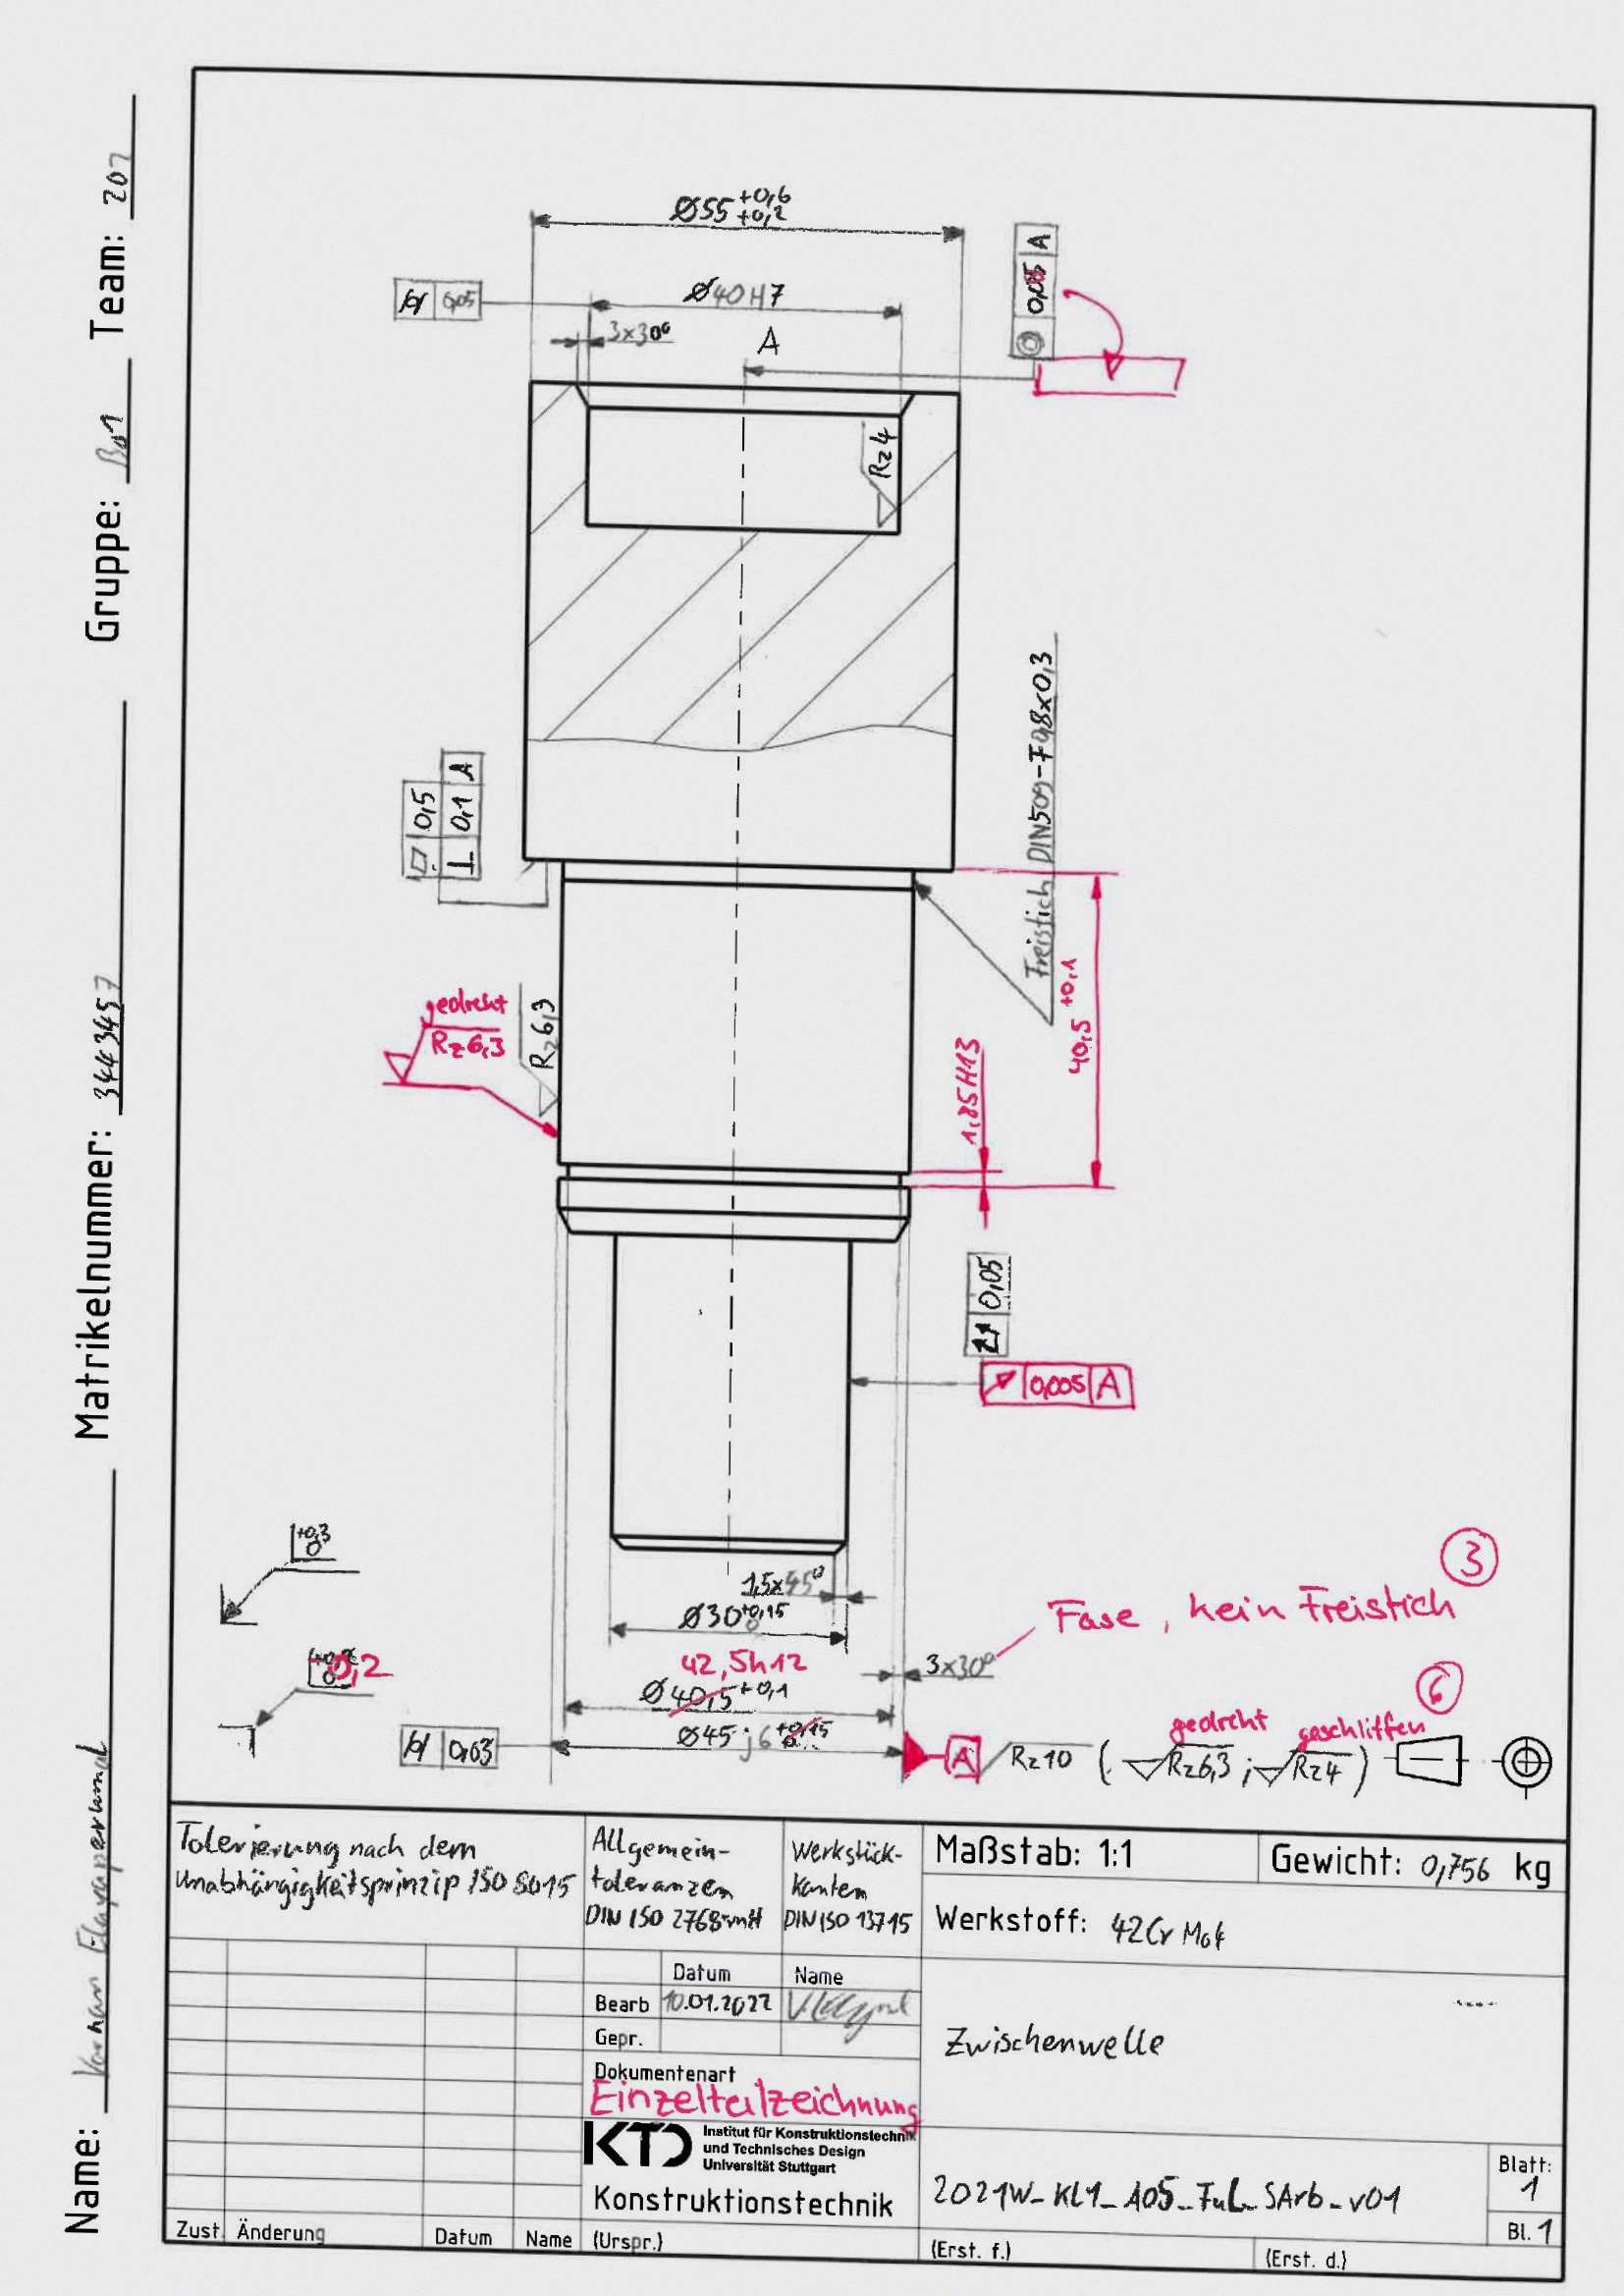 Name: Elayaperumal
Matrikelnummer: 3443457
Gruppe: Ba1
Team: 207
Ø55 +0,6 +0,2
Ø40H7
0,05
3x30°
A
0,05 A
Rz4
0,5
0,1 A
Freistich DIN509-F0,8x0,3
gedreht
Rz6,3
Rz6,3
40,5 +0,1
1,85H13
0,05
0,005 A
+0,3
0
0,2
1,5x45°
Ø30 +0,15 0
Fase, kein Freistich
3
42,5h12
3x30°
Ø40,5 +0,1
Ø45 j6 +0,15
0,03
A
gedreht geschliffen
6
Rz10 ( Rz6,3 ; Rz4 )
Tolerierung nach dem
Unabhängigkeitsprinzip ISO 8015
Allgemein-
toleranzen
DIN ISO 2768-mH
Werkstück-
kanten
DIN ISO 13715
Maßstab: 1:1
Gewicht: 0,756 kg
Werkstoff: 42CrMo4
Datum Name
Bearb 10.01.2022
Gepr.
Zwischenwelle
Dokumentenart
Einzelteilzeichnung
KTD
Institut für Konstruktionstechnik
und Technisches Design
Universität Stuttgart
Konstruktionstechnik
2021W_KL1_A05_FuL_SArb_v01
Blatt:
1
Bl. 1
Zust. Änderung Datum Name (Urspr.) (Erst. f.) (Erst. d.)